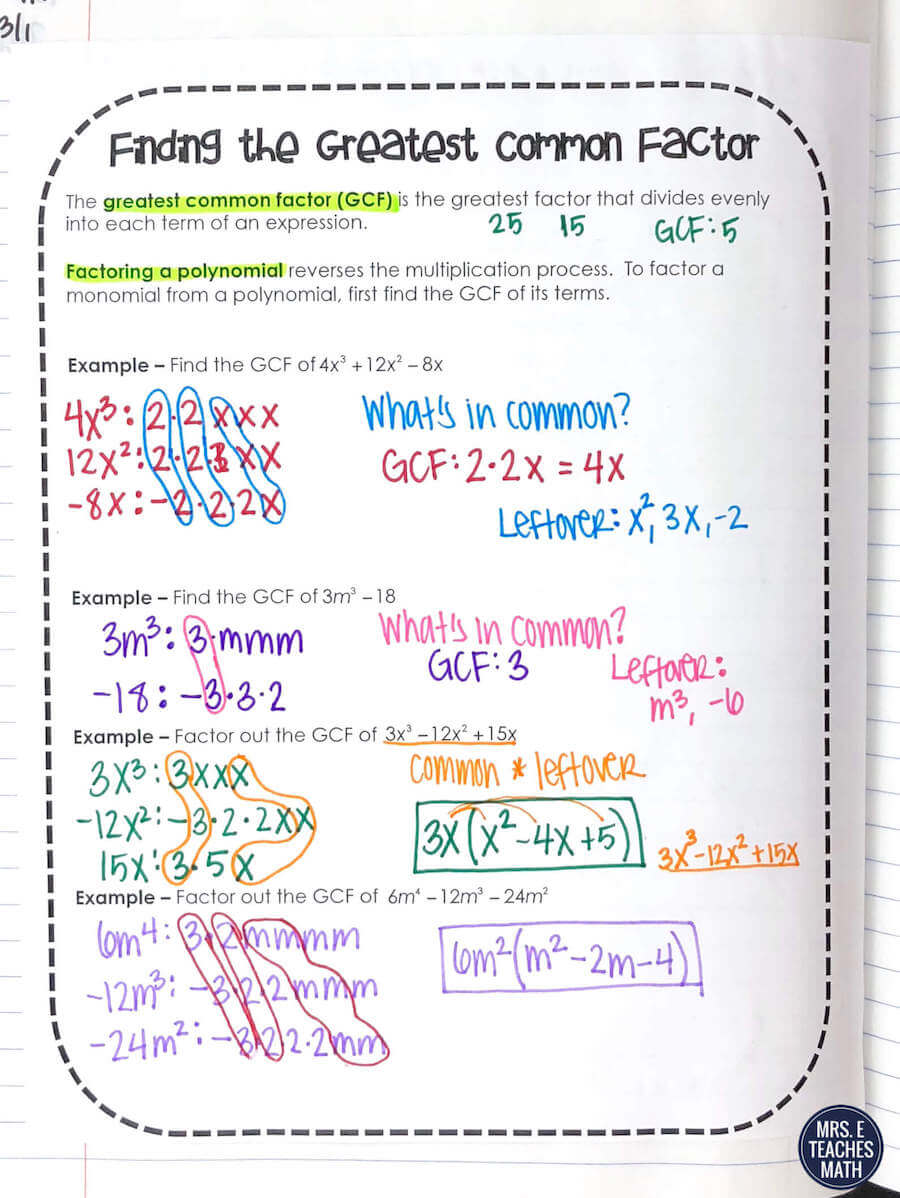 3/1
Finding the Greatest Common Factor
The greatest common factor (GCF) is the greatest factor that divides evenly
into each term of an expression.
25 15 GCF: 5
Factoring a polynomial reverses the multiplication process. To factor a
monomial from a polynomial, first find the GCF of its terms.
Example – Find the GCF of 4x³ + 12x² – 8x
4x³: 2·2xxx
12x²: 2·2·3xx
-8x: -2·2·2x
What's in common?
GCF: 2·2x = 4x
Leftover: x², 3x, -2
Example – Find the GCF of 3m³ – 18
3m³: 3·mmm
-18: -3·3·2
What's in common?
GCF: 3
Leftover:
m³, -6
Example – Factor out the GCF of 3x³ – 12x² + 15x
3x³: 3xxx
-12x²: -3·2·2xx
15x: 3·5x
common * leftover
3x(x²-4x+5)
3x³-12x²+15x
Example – Factor out the GCF of 6m⁴ – 12m³ – 24m²
6m4: 3·2mmmm
-12m³: -3·2·2mmm
-24m²: -3·2·2·2mm
6m²(m²-2m-4)
MRS. E
TEACHES
MATH